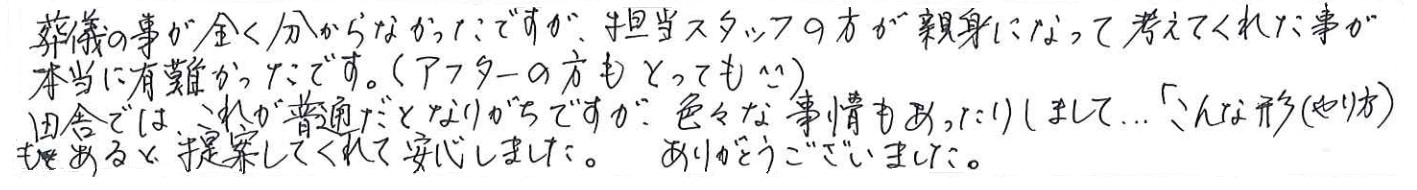 葬儀の事が全く分からなかったですが、担当スタッフの方が親身になって考えてくれた事が
本当に有難かったです。(アフターの方もとっても^^)
田舎では、これが普通だとなりがちですが、色々な事情もあったりしまして…「こんな形(やり方)
もあると、提案してくれて安心しました。 ありがとうございました。